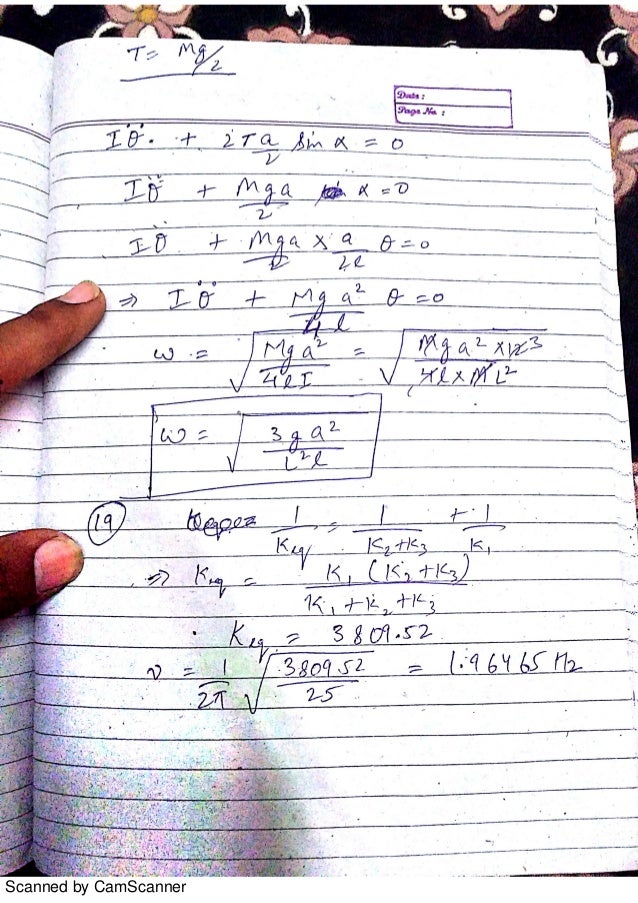 T = Mg/2
Date :
Page No. :
Iθ̈ + 2T a/2 sin α = 0
Iθ̈ + Mga/2 α = 0
Iθ̈ + Mga/2 × a/2l θ = 0
⇒ Iθ̈ + Mga²/4l θ = 0
ω = √(Mga²/4lI) = √(Mga² × 12 3/4l × ML²)
ω = √(3ga²/L²l)
(19) 1/Keq = 1/K₂+K₃ + 1/K₁
⇒ Keq = K₁(K₂+K₃)/K₁+K₂+K₃
Keq = 3809.52
ν = 1/2π √(3809.52/25) = 1.96465 Hz
Scanned by CamScanner